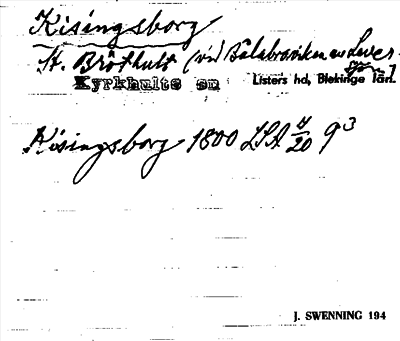 Kisingsborg
St. Bröthult (vid Balabraviken av Lever
sjön]
Kyrkhults sn Listers hd, Blekinge län.
Kisingsborg 1800 LSA 4/20 9³
J. SWENNING 194